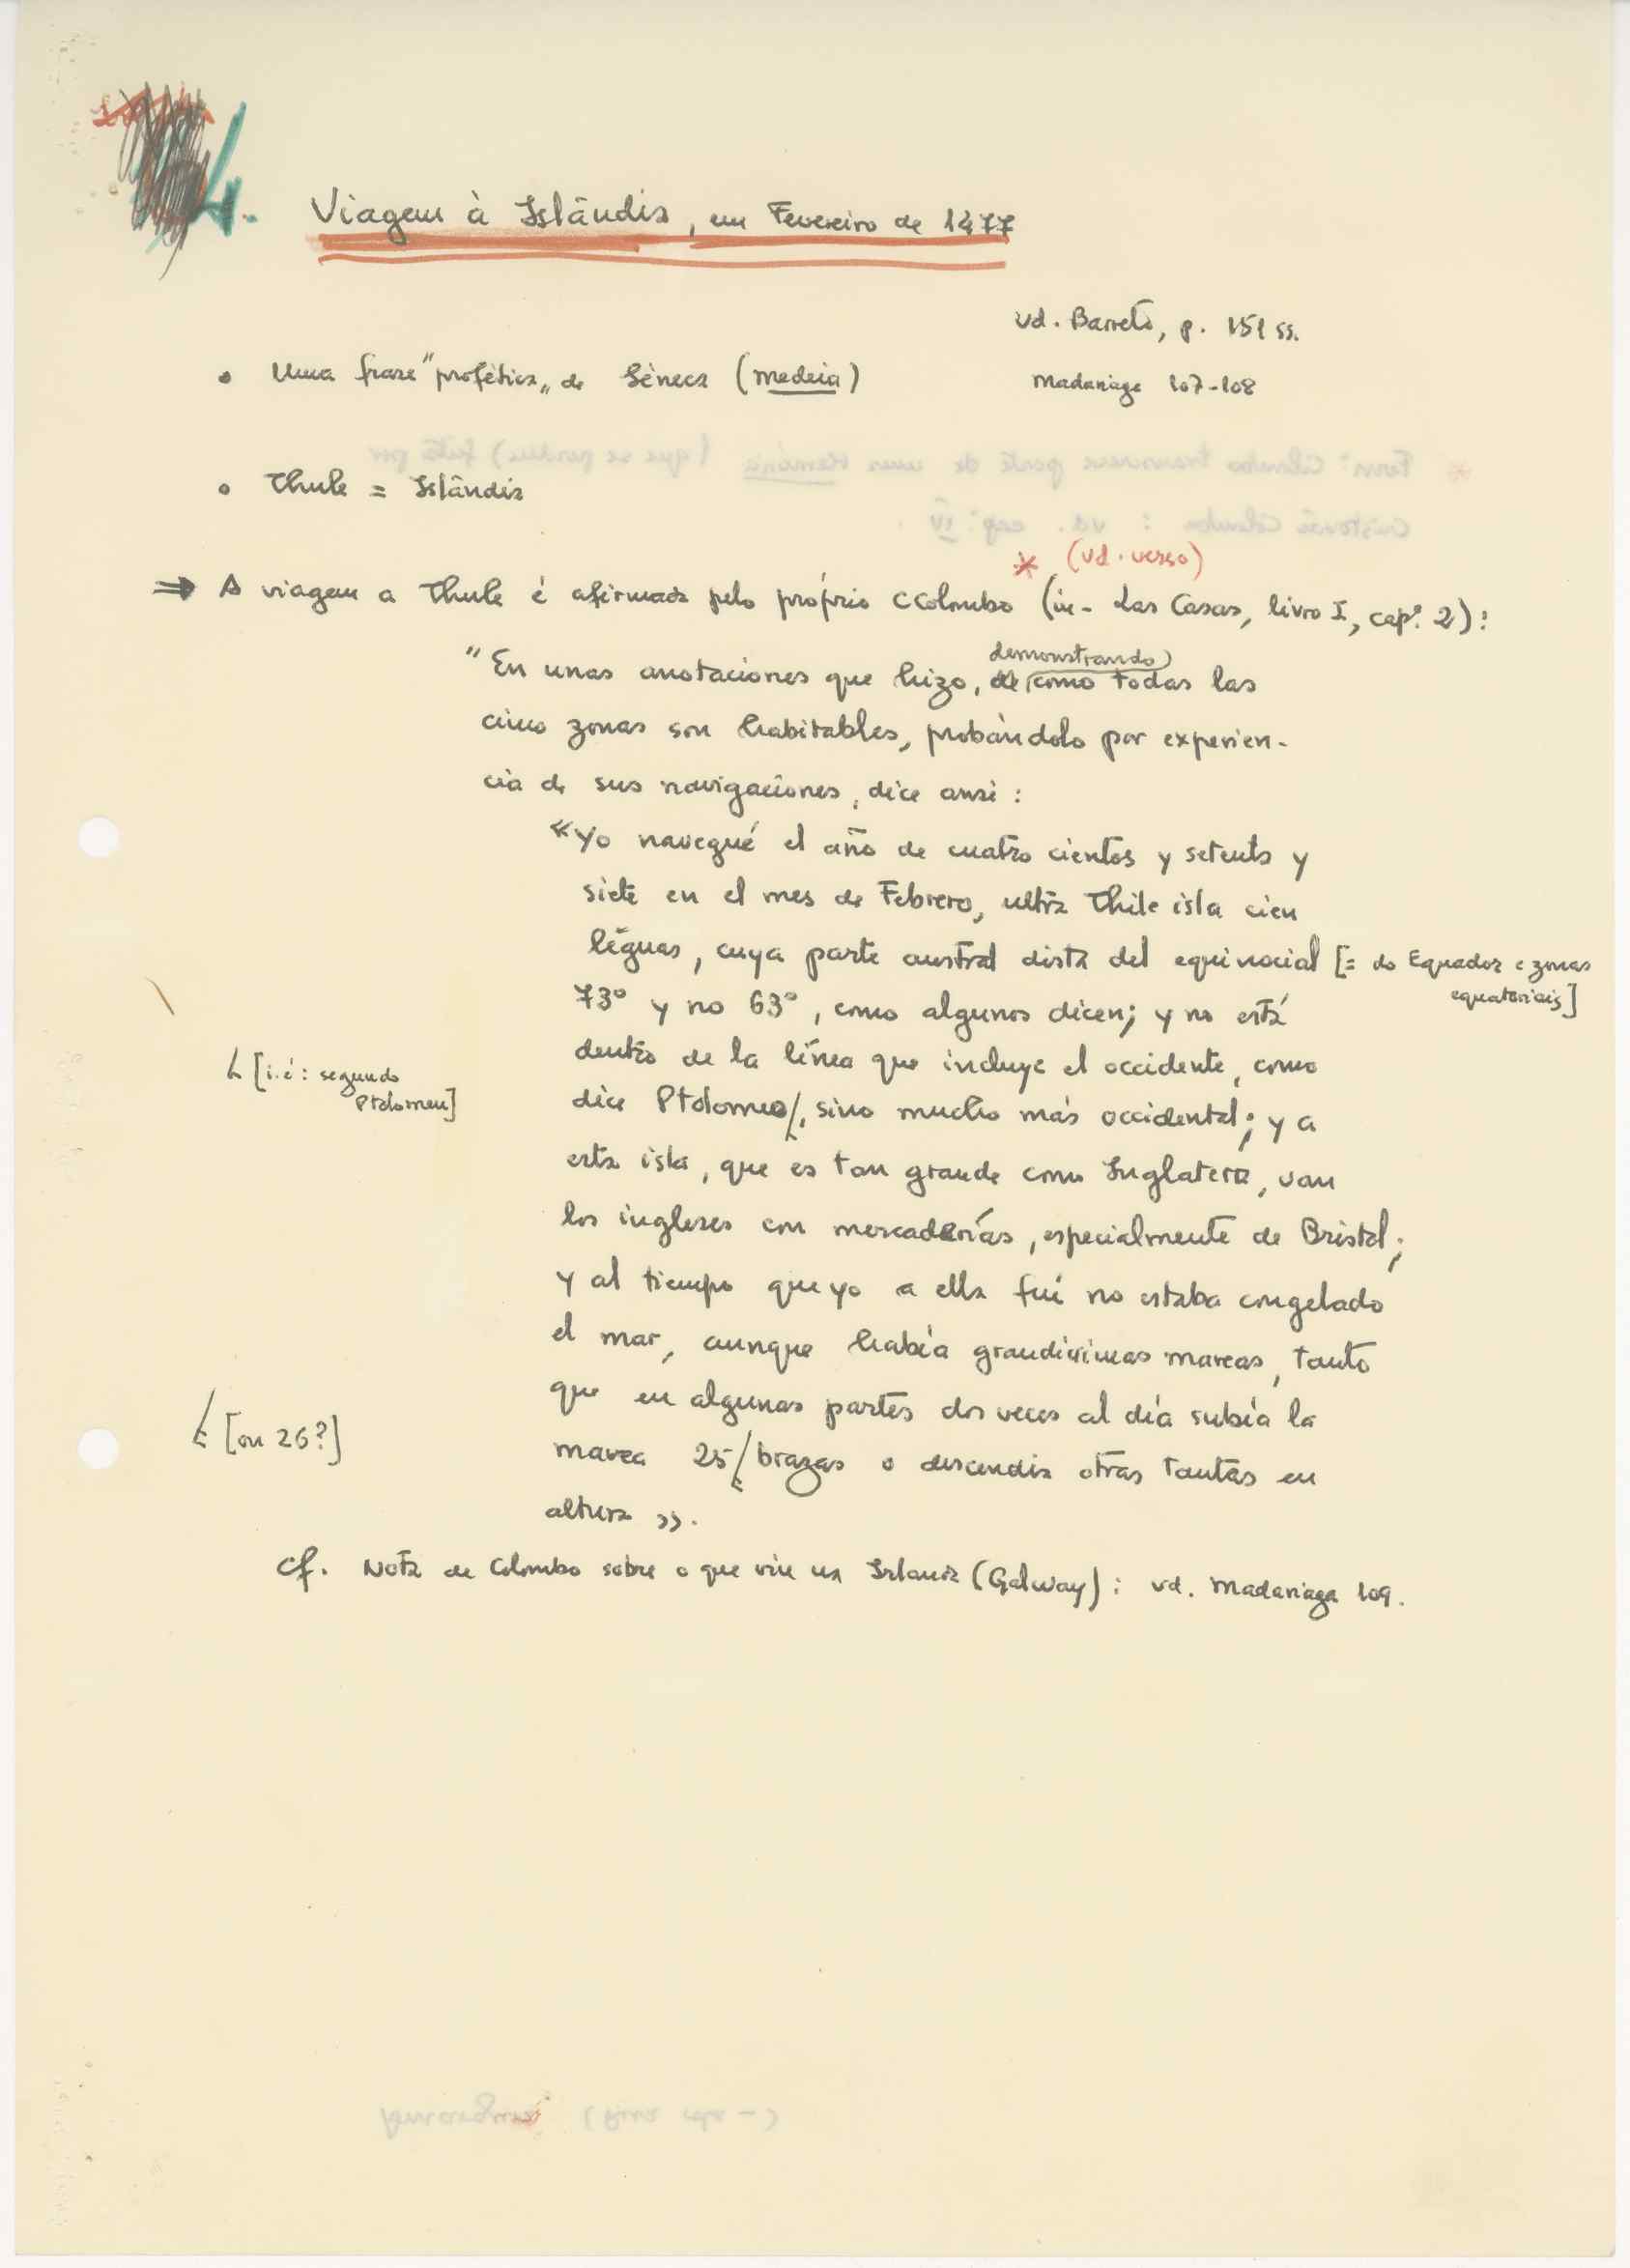 4.
Viagem à Islândia, em Fevereiro de 1477
vd. Barreto, p. 151 ss.
• Uma frase "profética" de Séneca (Medeia)
Madariaga 107-108
• Thule = Islândia
* (vd. verso)
⇒ A viagem a Thule é afirmada pelo próprio CColombo (in- Las Casas, livro I, cap.º 2):
demonstrando
"En unas anotaciones que hizo, de como todas las
cinco zonas son habitables, probándolo por experien-
cia de sus navigaciones, dice ansi:
«Yo navegué el año de cuatro cientos y setenta y
siete en el mes de Febrero, ultra Thile isla cien
léguas, cuya parte austral dista del equinocial [= do Equador e zonas
equatoriais]
73º y no 63º, como algunos dicen; y no está
dentro de la línea que incluye el occidente, como
[i.é: segundo
Ptolomeu]
dice Ptolomeo, sino mucho más occidental; y a
esta isla, que es tan grande como Inglaterra, van
los ingleses con mercaderías, especialmente de Bristol;
y al tiempo que yo a ella fuí no estaba congelado
el mar, aunque había grandísimas mareas, tanto
que en algunas partes dos veces al día subía la
[ou 26?]
marea 25 brazas o descendia otras tantas en
altura».
Cf. Nota de Colombo sobre o que viu na Irlanda (Galway): vd. Madariaga 109.